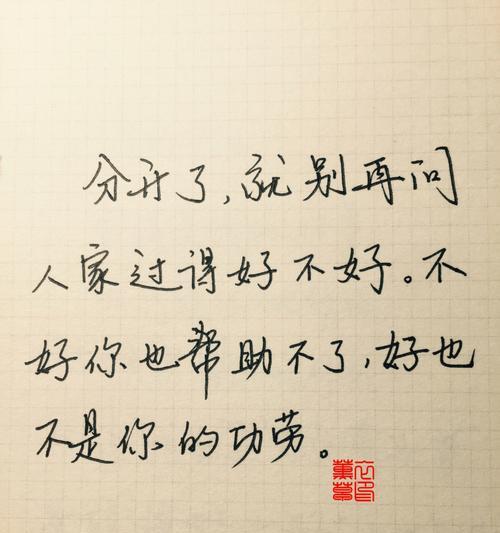 分开了,就别再问
人家过得好不好。不
好你也帮助不了,好也
不是你的功劳。